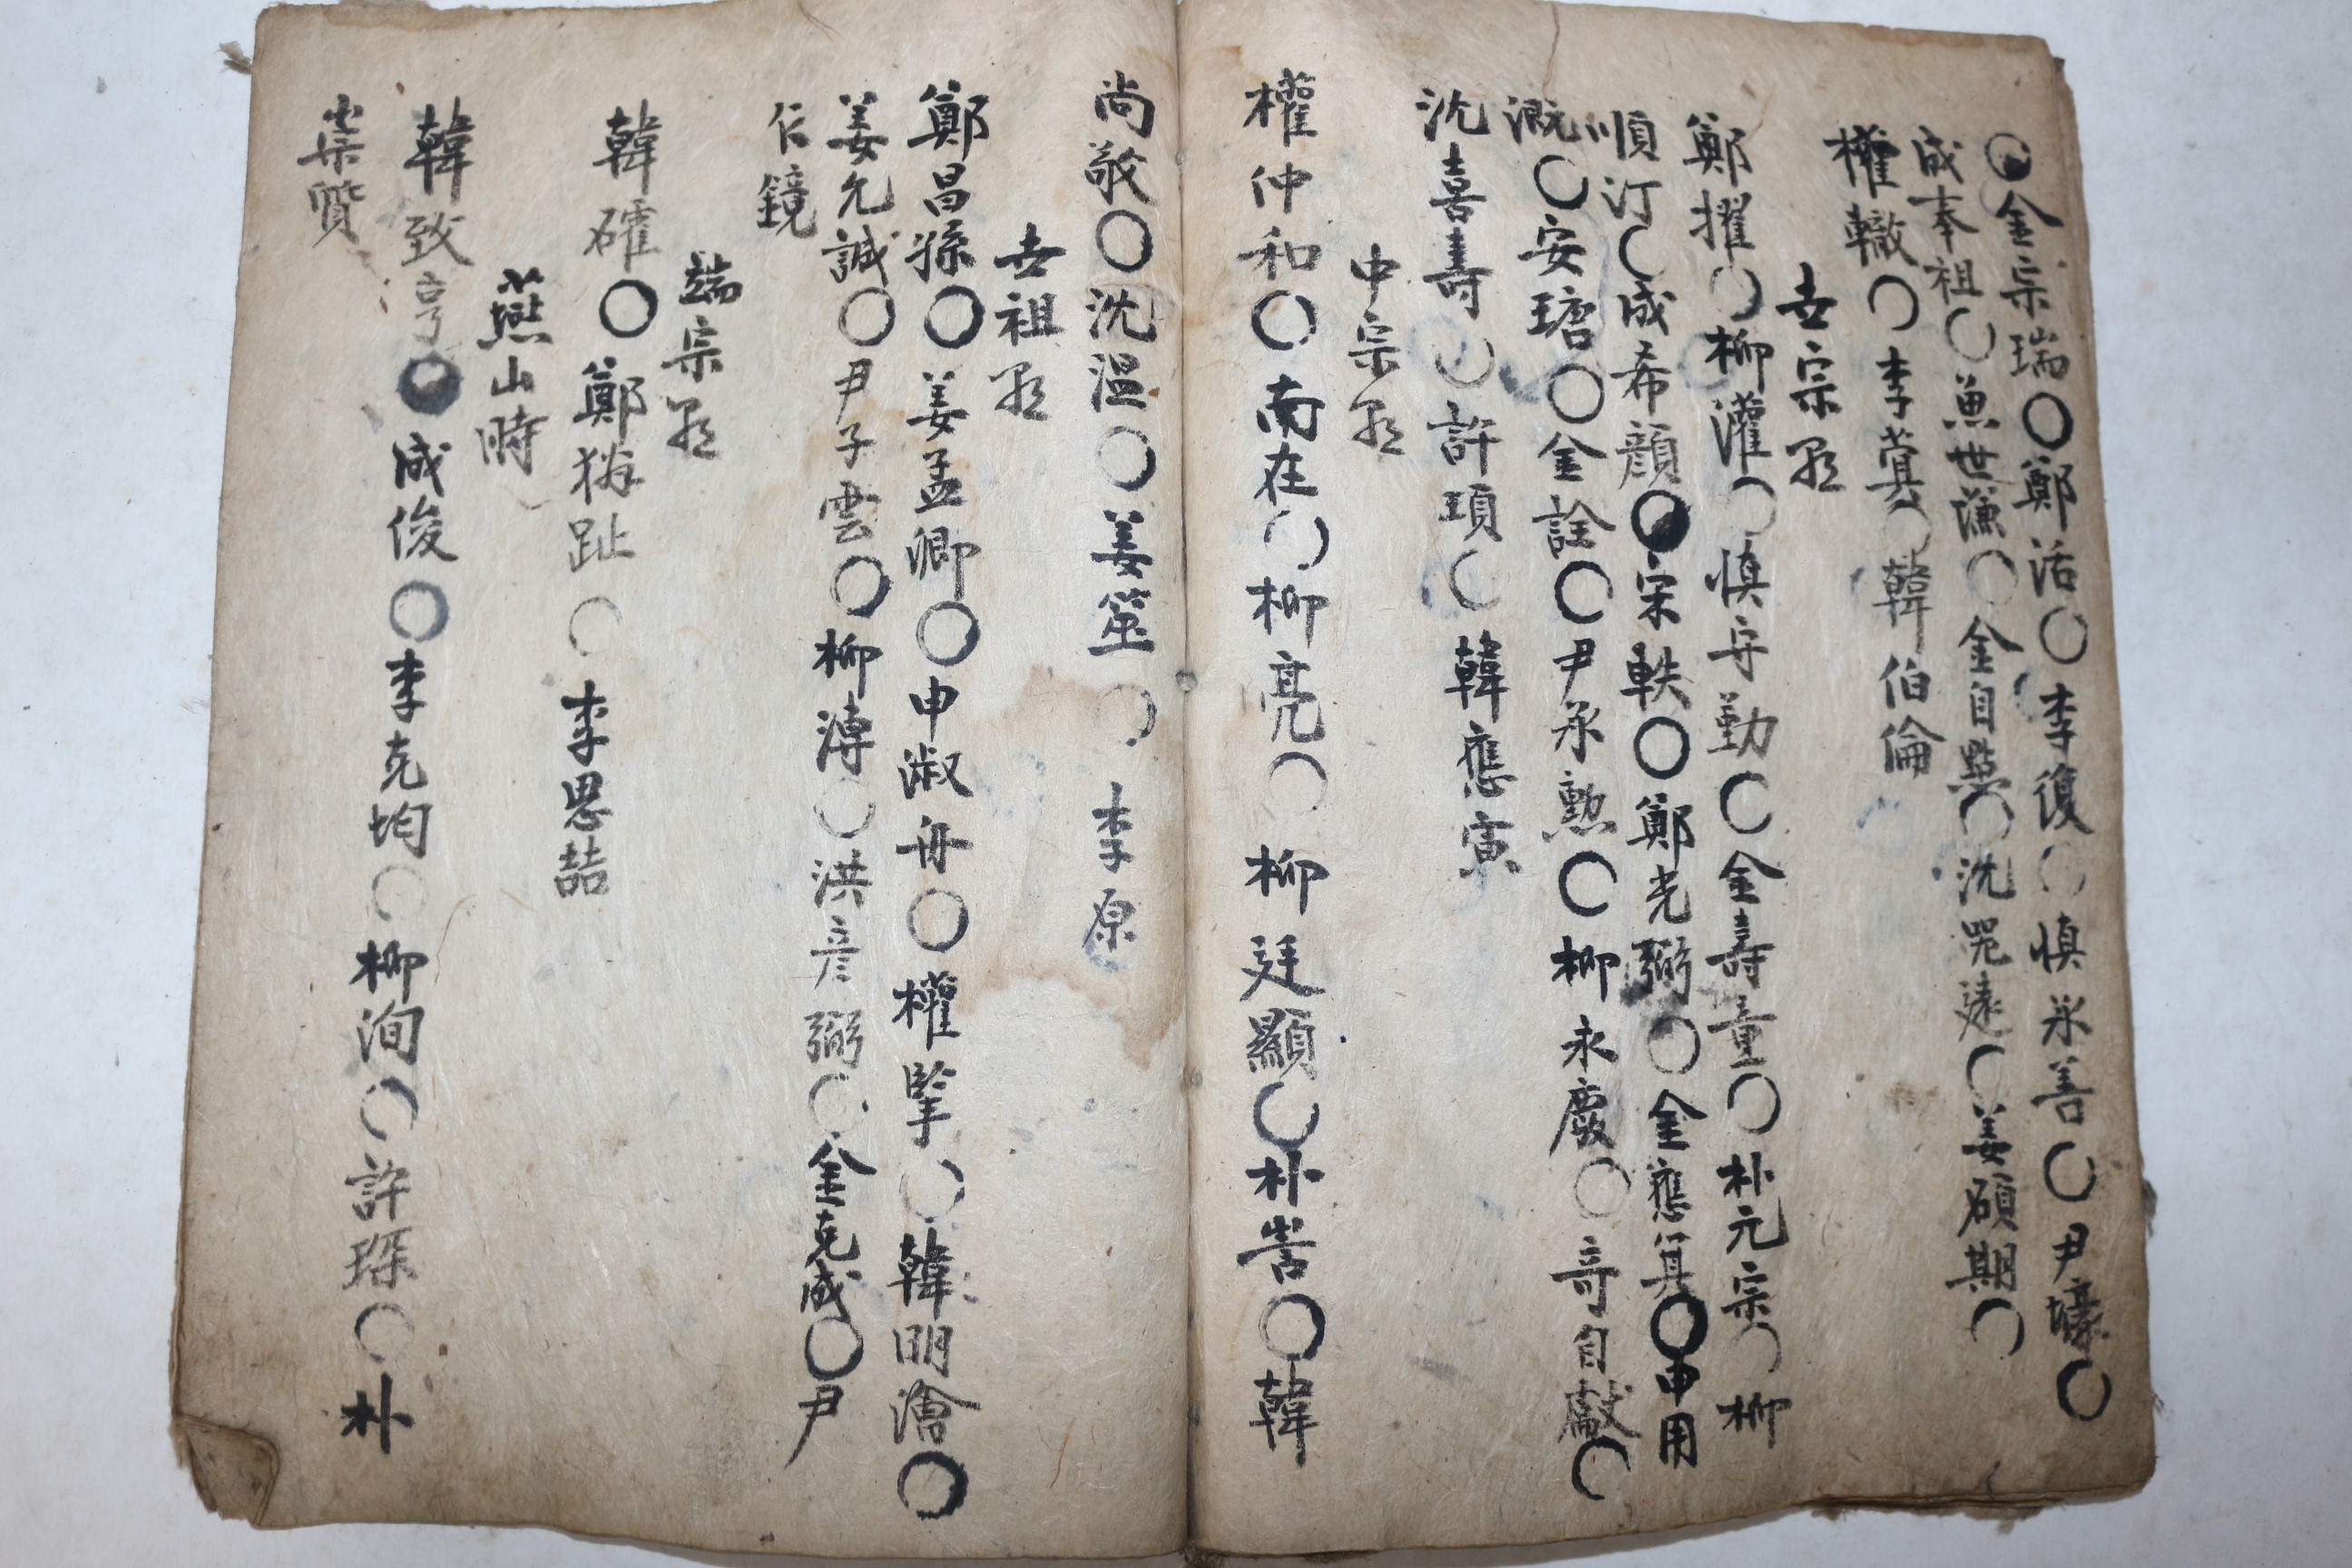 ●金宗瑞○鄭活○李復○愼承善○尹壕○
成奉祖○魚世謙○金自㸃○沈器遠○姜碩期○
權轍○李蓂○韓伯倫
世宗
鄭擢○柳灌○愼守勤○金壽童○朴元宗○柳
順汀○成希顔●宋軼○鄭光弼○金應箕○申用
漑○安瑭○金詮○尹承勲○柳永慶○奇自獻○
沈喜壽○許頊○韓應寅
中宗
權仲和○南在○柳亮○柳廷顯○朴訔○韓
尚敬○沈温○姜筮○李原
世祖
鄭昌孫○姜孟卿○申淑舟○權擥○韓明澮○
姜允誠○尹子雲○柳溥○洪彦弼○金克成○尹
仁鏡
端宗
韓確○鄭獜趾○李思喆
燕山時
韓致亨●成俊○李克均○柳洵○許琛○朴
崇質